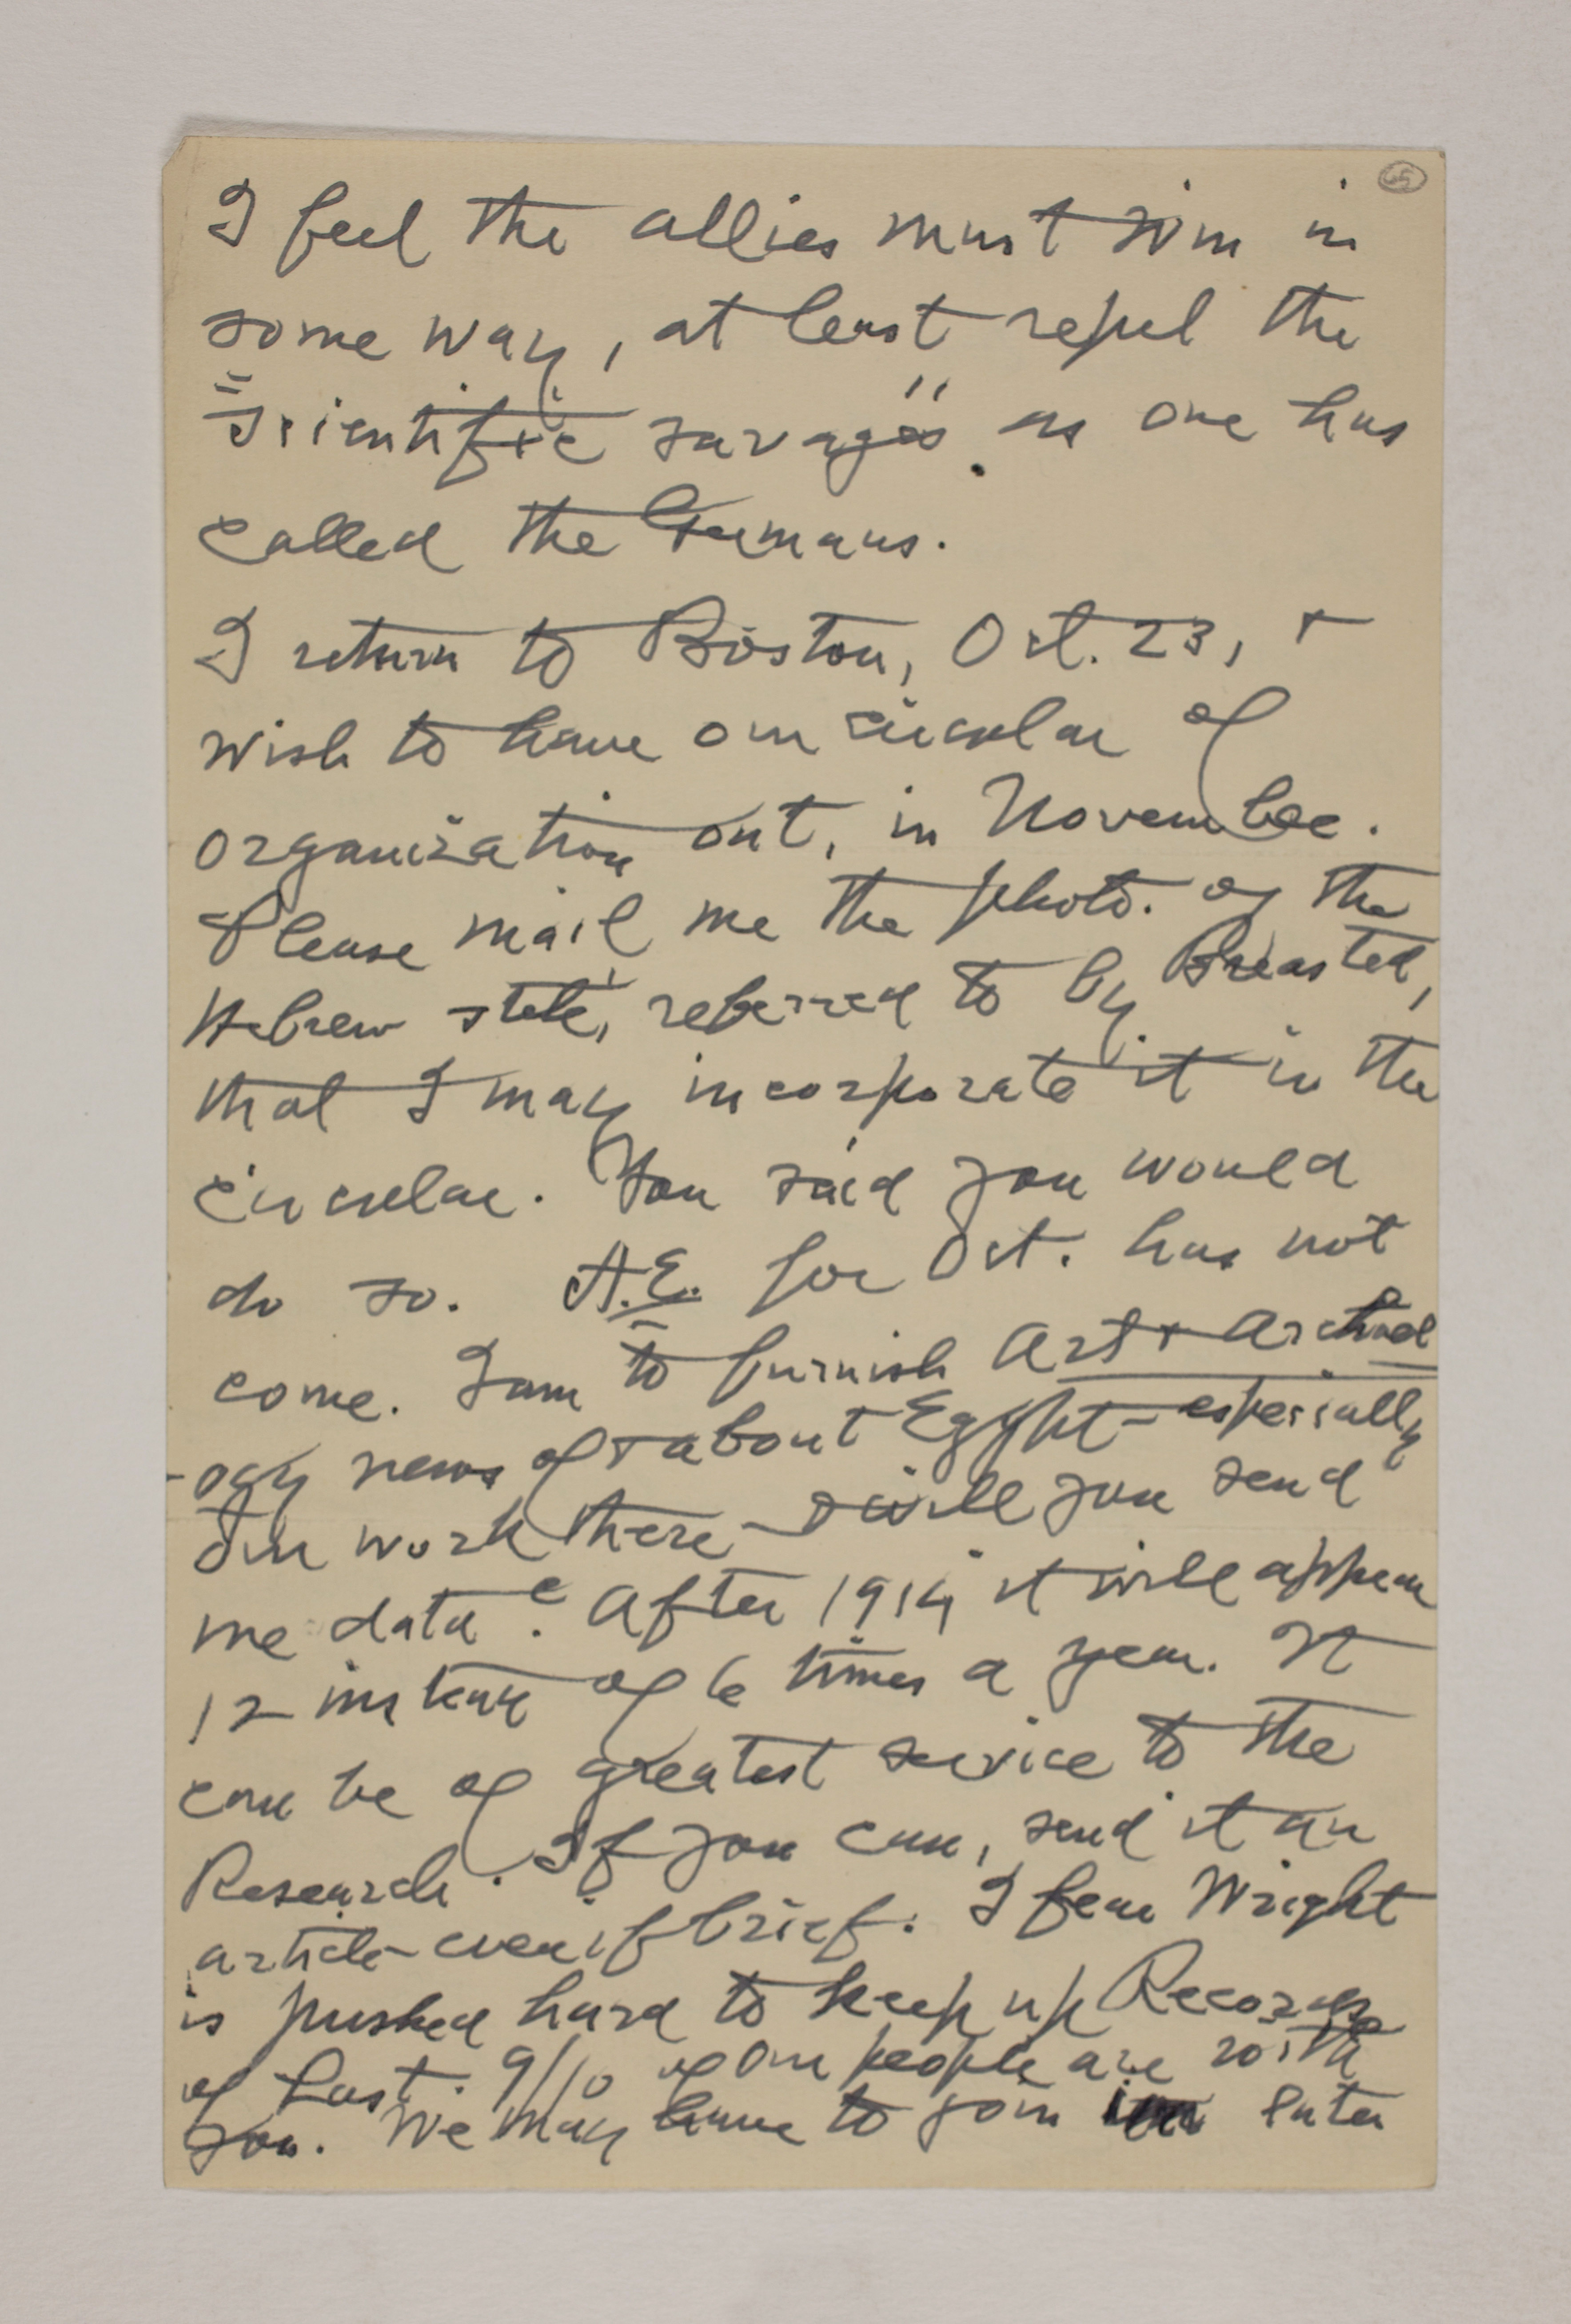 I feel the allies must win in
some way, at least repel the
"Scientific savages" as one has
called the Germans.
I return to Boston, Oct. 23, +
wish to have our circular of
organization out, in November.
Please mail me the photo. of the
Hebrew stele, referred to by Breasted,
that I may incorporate it in the
circular. You said you would
do so. A.E. for Oct. has not
come. I am to furnish Art + Archaeol
-ogy news of + about Egypt - especially
our work there - will you send
me data? After 1914 it will appear
12 instead of 6 times a year. It
can be of greatest service to the
Research. If you can, send it an
article - even if brief. I fear Wright
is pushed hard to keep up Records
of Past. 9/10 of our people are with
you. We may have to join in later